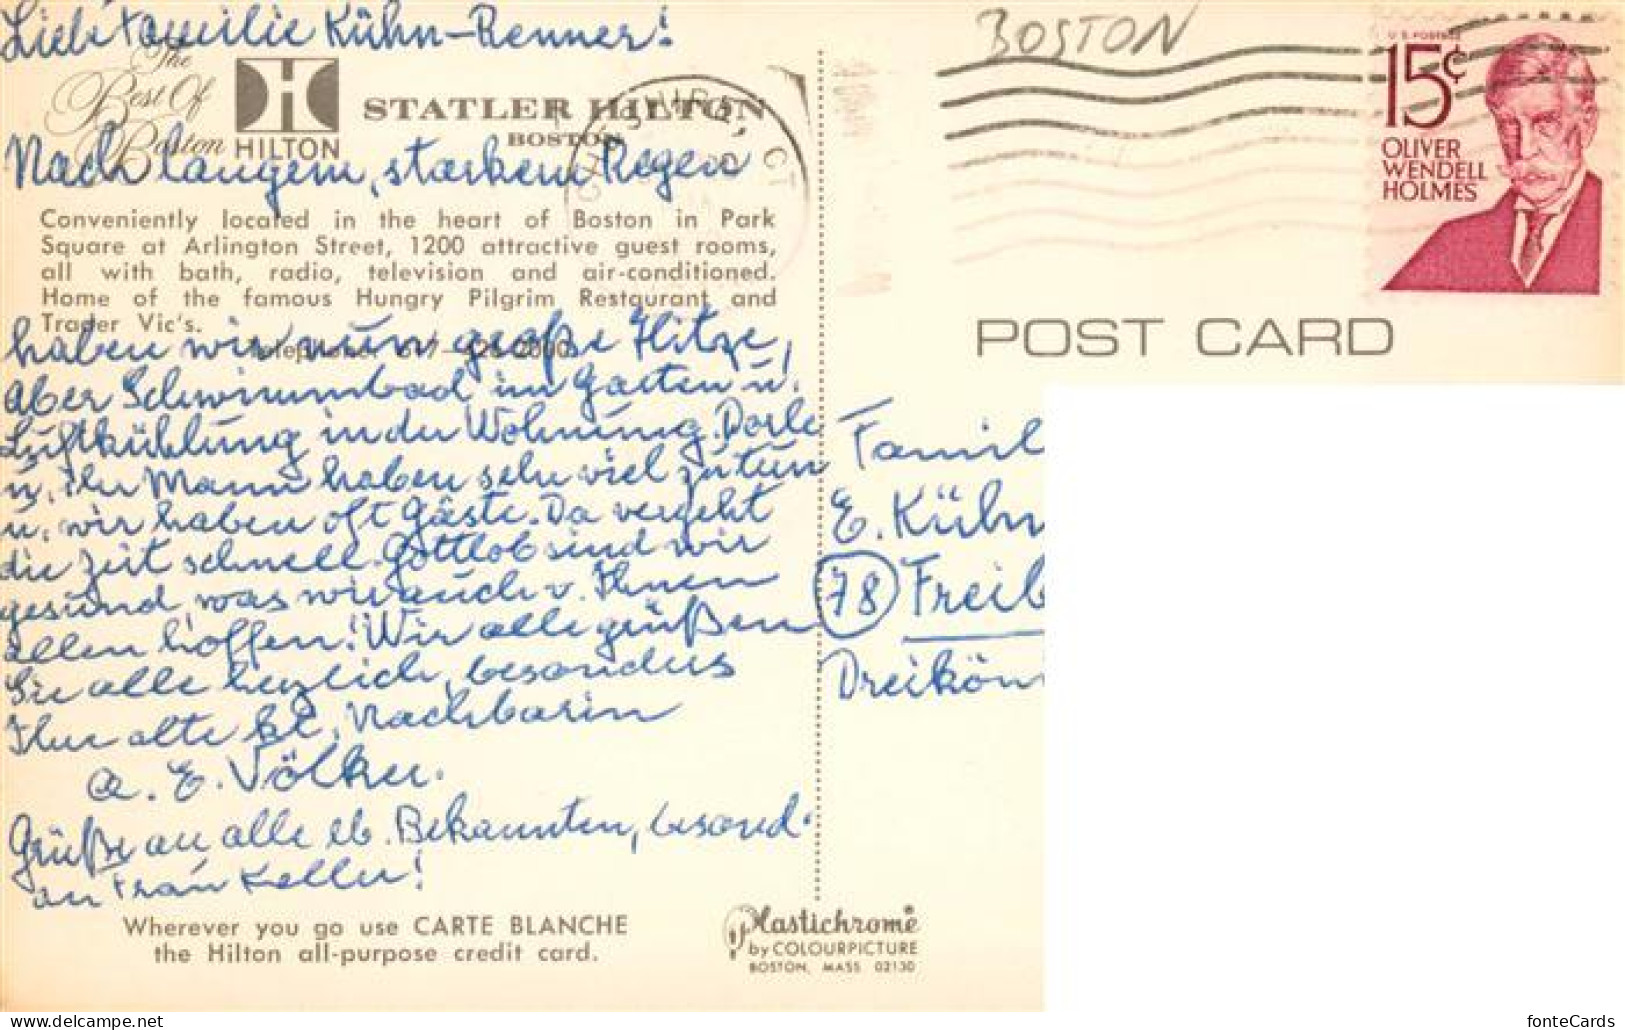 Liebe Familie Kühn-Renner!
The
Best Of
Boston
HILTON
STATLER HILTON
BOSTON
Nach langem, starkem Regen
Conveniently located in the heart of Boston in Park
Square at Arlington Street, 1200 attractive guest rooms,
all with bath, radio, television and air-conditioned.
Home of the famous Hungry Pilgrim Restaurant and
Trader Vic's.
haben wir nun große Hitze,
aber Schwimmbad im Garten u.
Luftkühlung in der Wohnung. Dorle
u. ihr Mann haben sehr viel zu tun
u. wir haben oft Gäste. Da vergeht
die Zeit schnell. Gottlob sind wir
gesund, was wir auch v. Ihnen
allen hoffen! Wir alle grüßen
Sie alle herzlich, besonders
Ihre alte Nachbarin
E. Völker.
Grüße an alle lb. Bekannten, besond.
an Frau Keller!
Wherever you go use CARTE BLANCHE
the Hilton all-purpose credit card.
Plastichrome®
by COLOURPICTURE
BOSTON, MASS 02130
BOSTON
CHESHIRE, CT
U.S. POSTAGE
15¢
OLIVER
WENDELL
HOLMES
POST CARD
Famil
E. Kühn
78 Freib
Dreikön
fonteCards